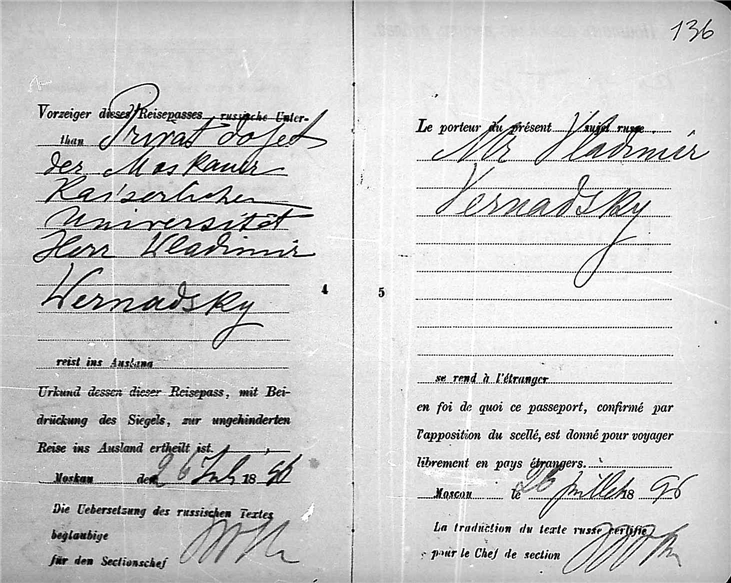 136
Vorzeiger dieses Reisepasses russische Unter-
than Privat dozent
der Moskauer
Kaiserlichen
Universität
Herr Wladimir
Wernadsky
4
reist ins Ausland
Urkund dessen dieser Reisepass, mit Bei-
drückung des Siegels, zur ungehinderten
Reise ins Ausland ertheilt ist.
Moskau den 26 Juli 1896
Die Uebersetzung des russischen Textes
beglaubige
für den Sectionschef
Le porteur du présent sujet russe
Mr Vladimir
Vernadsky
5
se rend à l'étranger
en foi de quoi ce passeport, confirmé par
l'apposition du scellé, est donné pour voyager
librement en pays étrangers.
Moscou le 26 juillet 1896
La traduction du texte russe certifie
pour le Chef de section